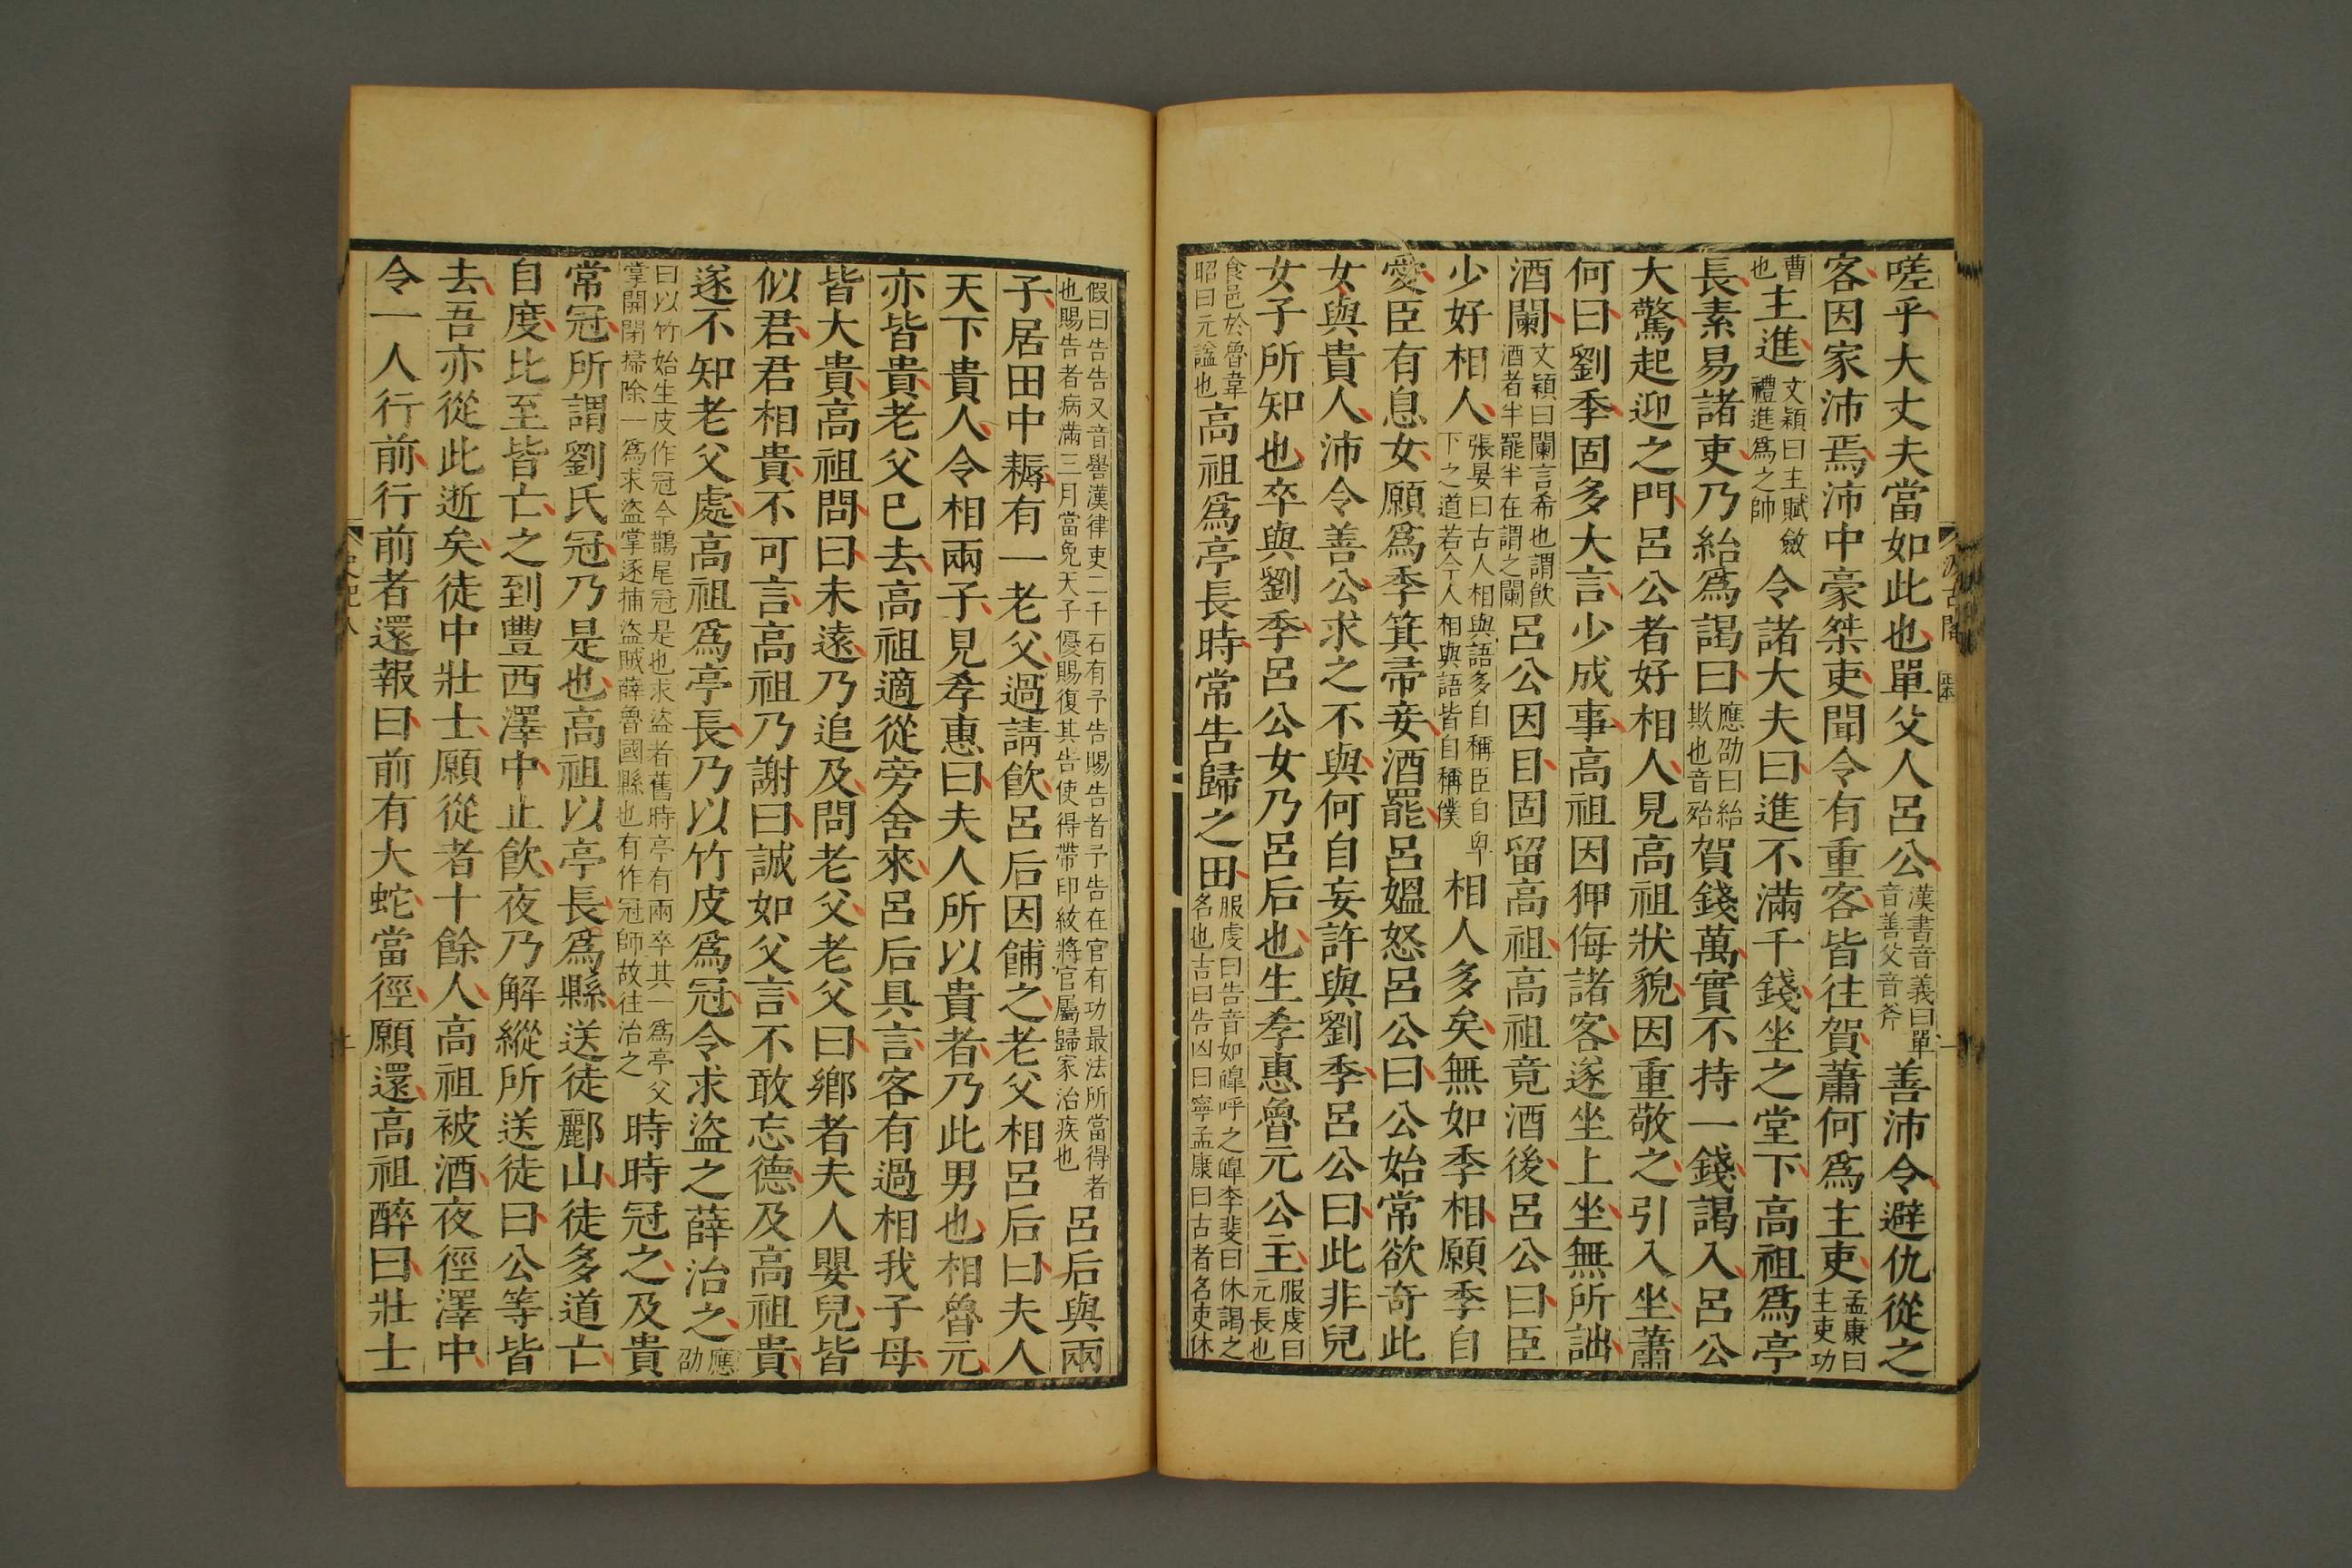 嗟乎大丈夫當如此也單父人呂公漢書音義曰單音善父音斧善沛令避仇從之
客因家沛焉沛中豪桀吏聞令有重客皆往賀蕭何爲主吏孟康曰主吏功
曹也主進文穎曰主賦斂禮進爲之帥令諸大夫曰進不滿千錢坐之堂下高祖爲亭
長素易諸吏乃紿爲謁曰應劭曰紿欺也音殆賀錢萬實不持一錢謁入呂公
大驚起迎之門呂公者好相人見高祖狀貌因重敬之引入坐蕭
何曰劉季固多大言少成事高祖因狎侮諸客遂坐上坐無所詘
酒闌文穎曰闌言希也謂飲酒者半罷半在謂之闌呂公因目固留高祖高祖竟酒後呂公曰臣
少好相人張晏曰古人相與語多自稱臣自卑下之道若今人相與語皆自稱僕相人多矣無如季相願季自
愛臣有息女願爲季箕帚妾酒罷呂媼怒呂公曰公始常欲奇此
女與貴人沛令善公求之不與何自妄許與劉季呂公曰此非兒
女子所知也卒與劉季呂公女乃呂后也生孝惠魯元公主服虔曰元長也
食邑於魯韋昭曰元諡也高祖爲亭長時常告歸之田服虔曰告音如嘷呼之嘷李斐曰休謁之名也吉曰告凶曰寧孟康曰古者名吏休
假曰告告又音嚳漢律吏二千石有予告賜告者予告在官有功最法所當得者也賜告者病滿三月當免天子優賜復其告使得帶印紱將官屬歸家治疾也呂后與兩
子居田中耨有一老父過請飲呂后因餔之老父相呂后曰夫人
天下貴人令相兩子見孝惠曰夫人所以貴者乃此男也相魯元
亦皆貴老父已去高祖適從旁舍來呂后具言客有過相我子母
皆大貴高祖問曰未遠乃追及問老父老父曰鄉者夫人嬰兒皆
似君君相貴不可言高祖乃謝曰誠如父言不敢忘德及高祖貴
遂不知老父處高祖爲亭長乃以竹皮爲冠令求盜之薛治之應劭
曰以竹始生皮作冠今鵲尾冠是也求盜者舊時亭有兩卒其一爲亭父掌開閉掃除一爲求盜掌逐捕盜賊薛魯國縣也有作冠師故往治之時時冠之及貴
常冠所謂劉氏冠乃是也高祖以亭長爲縣送徒酈山徒多道亡
自度比至皆亡之到豐西澤中止飲夜乃解縱所送徒曰公等皆
去吾亦從此逝矣徒中壯士願從者十餘人高祖被酒夜徑澤中
令一人行前行前者還報曰前有大蛇當徑願還高祖醉曰壯士